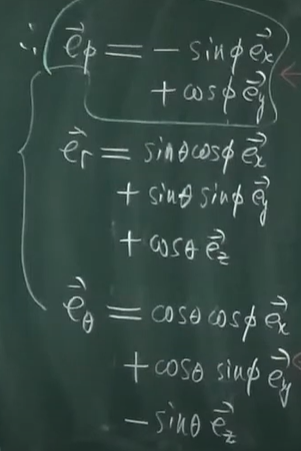 ∴ e⃗φ = − sinφ e⃗x
+ cosφ e⃗y
e⃗r = sinθcosφ e⃗x
+ sinθ sinφ e⃗y
+ cosθ e⃗z
e⃗θ = cosθcosφ e⃗x
+ cosθ sinφ e⃗y
− sinθ e⃗z